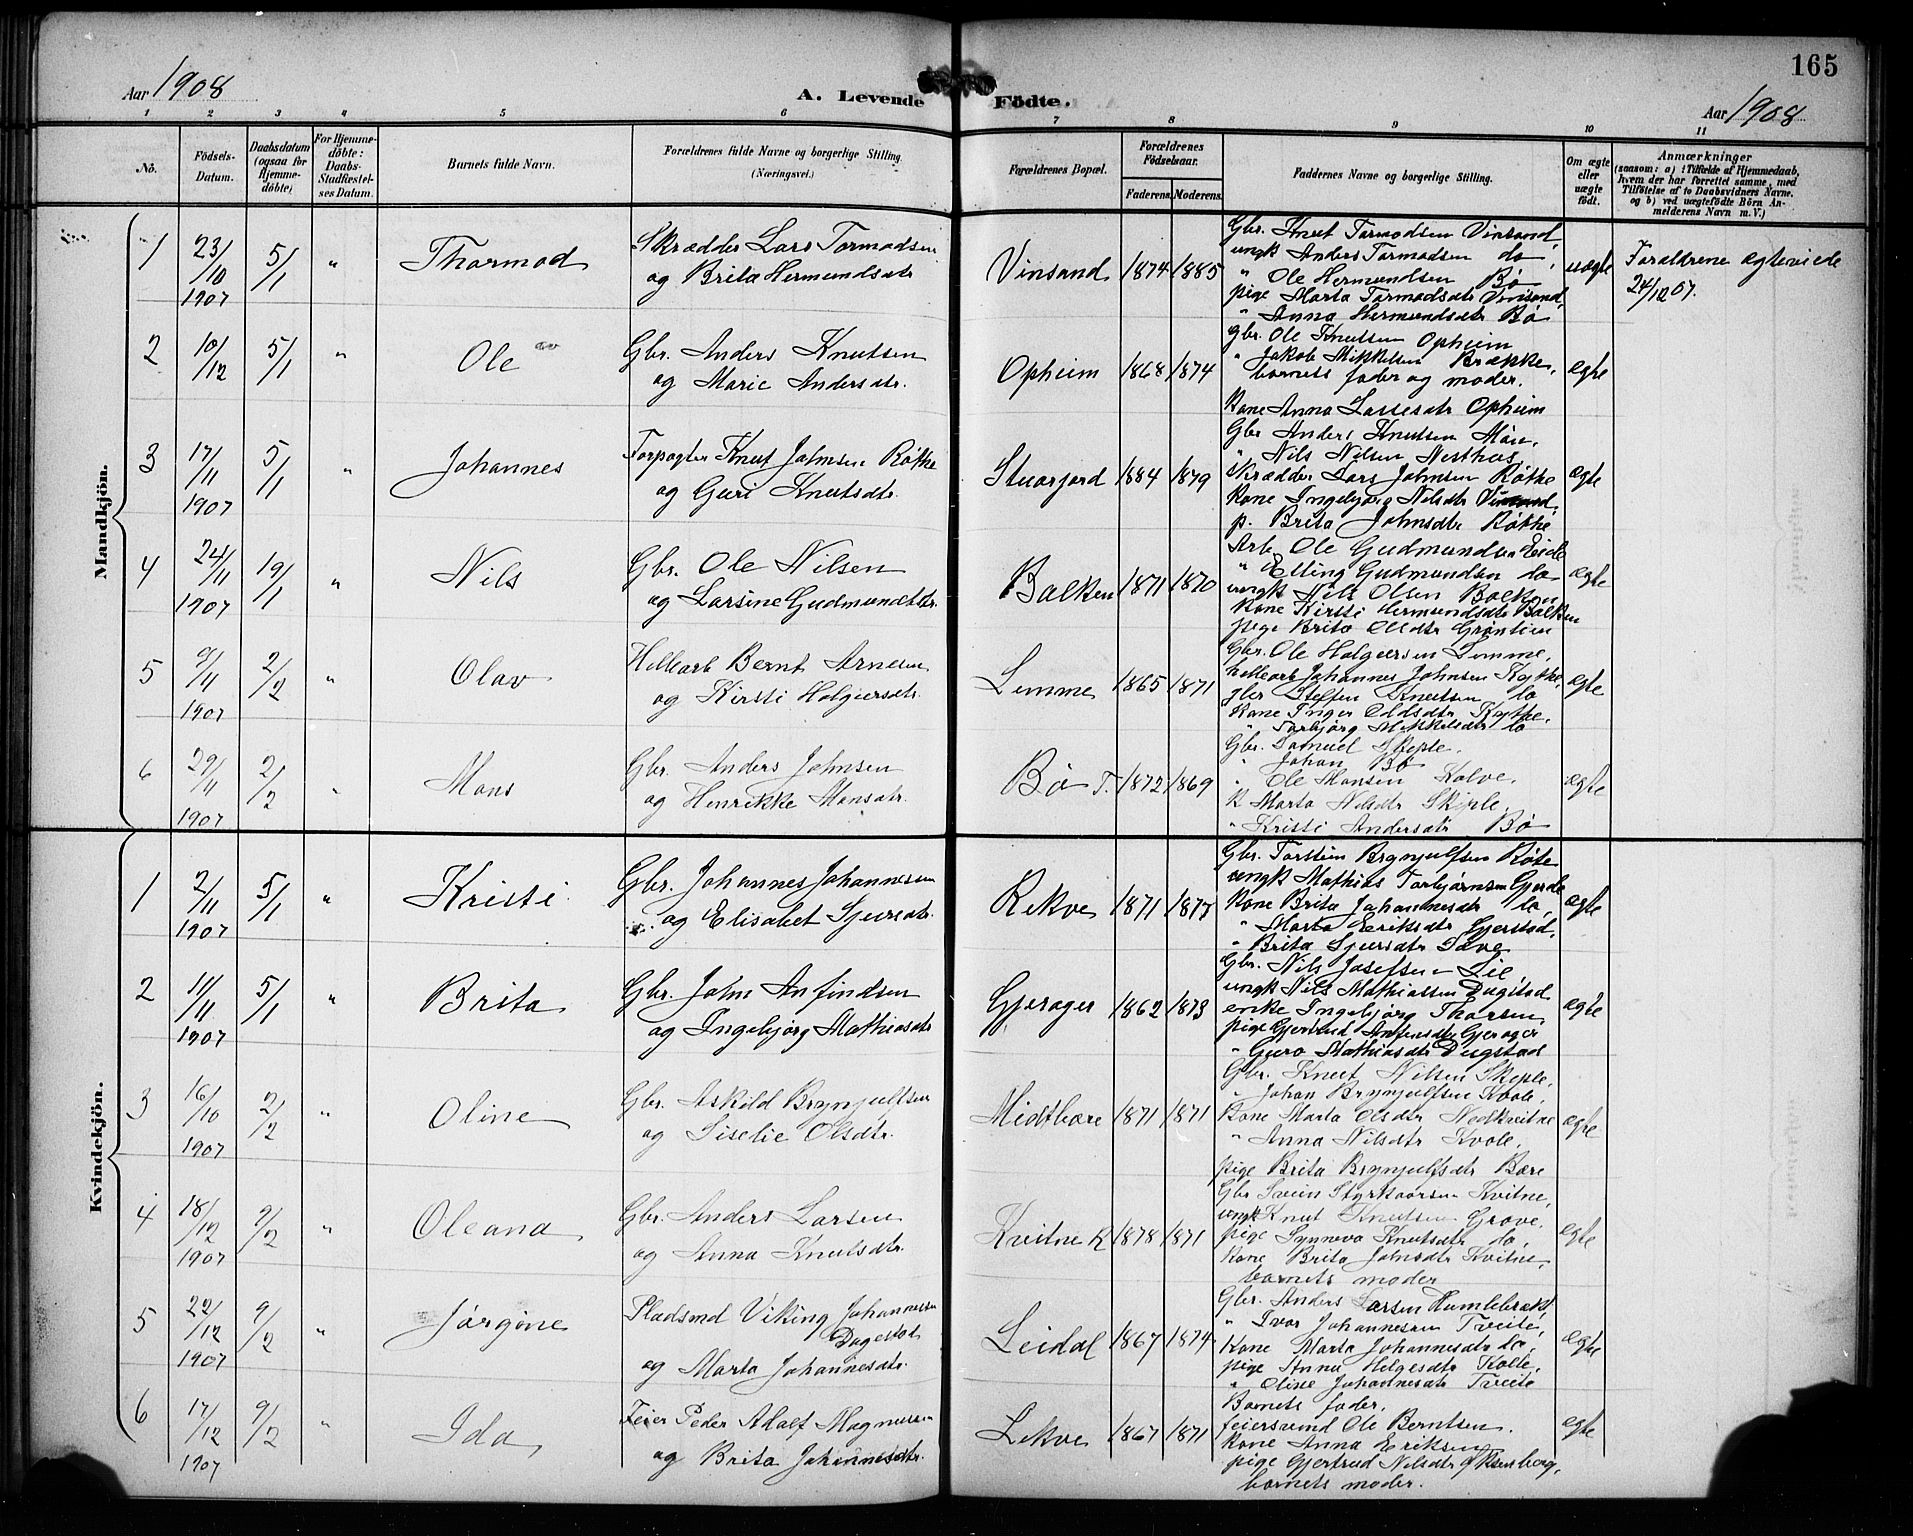 165
Aar 1908
A. Levende Födte.
Aar 1908
1 2 3 4 5 6 7 8 9 10 11
No.
Födsels-Datum.
Daabsdatum (ogsaa for Hjemme-döbte)
For Hjemme-döbte: Daabs-Stadfæstel-ses Datum.
Barnets fulde Navn.
Forældrenes fulde Navne og borgerlige Stilling
(Næringsvei.)
Forældrenes Bopæl.
Forældrenes Födselsaar.
Faderens. Moderens.
Faddernes Navne og borgerlige Stilling.
Om ægte eller uægte födt.
Anmærkninger
(saasom: a) i Tilfælde af Hjemmedaab,
hvem der har forrettet samme, med
Tilföielse af to Daabsvidners Navne.
og b) ved uægtefödte Börn An-
melderens Navn m. V.)
Mandkjön.
1 23/10 1907 5/1 " Thormod
Skrædder Lars Tormodsen
og Brita Hermundsdtr
Vinsand 1874 1885
Gbr. Knut Tormodsen Vinsand,
ungk Anders Tormodsen do,
" Ole Hermundsen Bø
pige Marta Tormodsdtr Vinsand,
" Anna Hermundsdtr Bø
uægte
Forældrene ægteviede
24/12 07.
2 10/12 5/1 " Ole
Gbr. Anders Knutsen
og Marie Andersdtr.
Opheim 1868 1874
Gbr. Ole Knutsen Opheim
" Jakob Mikkelsen Brække,
barnets fader og moder.
Kone Anna Lassesdtr Opheim
ægte
3 17/11 1907 5/1 " Johannes
Forpagter Knut Johnsen Røthe
og Guri Knutsdtr.
1884 1879
Gbr Anders Knutsen Møn,
" Nils Nilsen Nesthus
Skrædder Lars Johnsen Røthe
Kone Ingebjørg Nilsdtr
p. Brita Johnsdtr Røthe
ægte
4 24/11 1907 19/1 " Nils
Gbr. Ole Nilsen
og Larsine Gudmundsdtr.
Balken 1871 1870
Arb. Ole Gudmundsen Eide
" Elling Gudmundsen do
ungk Nils Olsen Balken
Kone Kirsti Hermundsdtr Balken
pige Brita Olsdtr Grønlien
ægte
5 9/11 1907 2/2 " Olav
Hellearb Bernt Arnesen
og Kirsti Holgersdtr.
Lemme 1865 1871
Gbr. Ole Holgersen Lemme,
hellearb Johannes Johnsen Kythe,
gbr Steffen Knutsen do
Kone Inger Oddsdtr Kythe,
" Torbjørg Mikkelsdtr do
ægte
6 29/11 1907 2/2 " Mons
Gbr. Anders Johnsen
og Henrikke Monsdtr.
Bø T. 1872 1869
Gbr. Samuel Skiple.
" Johan Bø
" Ole Monsen Kolve.
K Marta Nilsdtr Skiple.
" Kristi Andersdtr Bø
ægte
Kvindekjön.
1 2/11 1907 5/1 " Kristi
Gbr. Johannes Johannesen
og Elisabet Sjursdtr.
Rekve 1871 1877
Gbr. Torstein Brynjulfsen Røte
ungk Mathias Torbjørnsen Gjerde
Kone Brita Johannesdtr do,
" Marta Eriksdtr Gjerstad,
" Brita Sjursdtr Tsave
ægte
2 11/11 1907 5/1 " Brita
Gbr. John Anfindsen
og Ingebjørg Mathiasdtr
Gjerager 1862 1873
Gbr. Nils Josefsen Lie,
ungk Nils Mathiassen Dugstad,
enke Ingebjørg Thorsen,
pige Gjertrud Anfinsdtr Gjerager
" Guro Mathiasdtr Dugstad
ægte
3 16/10 1907 2/2 " Oline
Gbr. Askild Brynjulfsen
og Siselie Olsdtr.
Midtbære 1871 1871
Gbr. Knut Nilsen Skiple,
" Johan Brynjulfsen Kvole,
Kone Marta Olsdtr Nedkvitne
" Anna Nilsdtr Kvole,
pige Brita Brynjulfsdtr Bære
ægte
4 18/12 1907 9/2 " Oleana
Gbr. Anders Larsen
og Anna Knutsdtr.
Kvitne R 1878 1871
Gbr Svein Styrkaarsen Kvitne,
ungk Knut Knutsen Grove,
pige Synneva Knutsdtr do,
Kone Brita Johnsdtr Kvitne,
barnets moder
ægte
5 22/12 1907 9/2 " Jørgine
Pladsmd Viking Johannessen
Dagestad
og Marta Johannesdtr.
Leidal 1867 1874
Gbr. Anders Larsen Humlebræk,
" Ivar Johannessen Tveite,
Kone Marta Johannesdtr do,
pige Anna Helgesdtr Kvole,
" Oline Johannesdtr Tveite
ægte
6 17/12 1907 9/2 " Ida
Feier Peder Adolf Magnussen
og Brita Johannesdtr.
Lekve 1867 1871
Barnets fader,
feiersvend Ole Berntsen.
Kone Anna Eriksen
pige Gjertrud Nilsdtr
barnets moder.
ægte